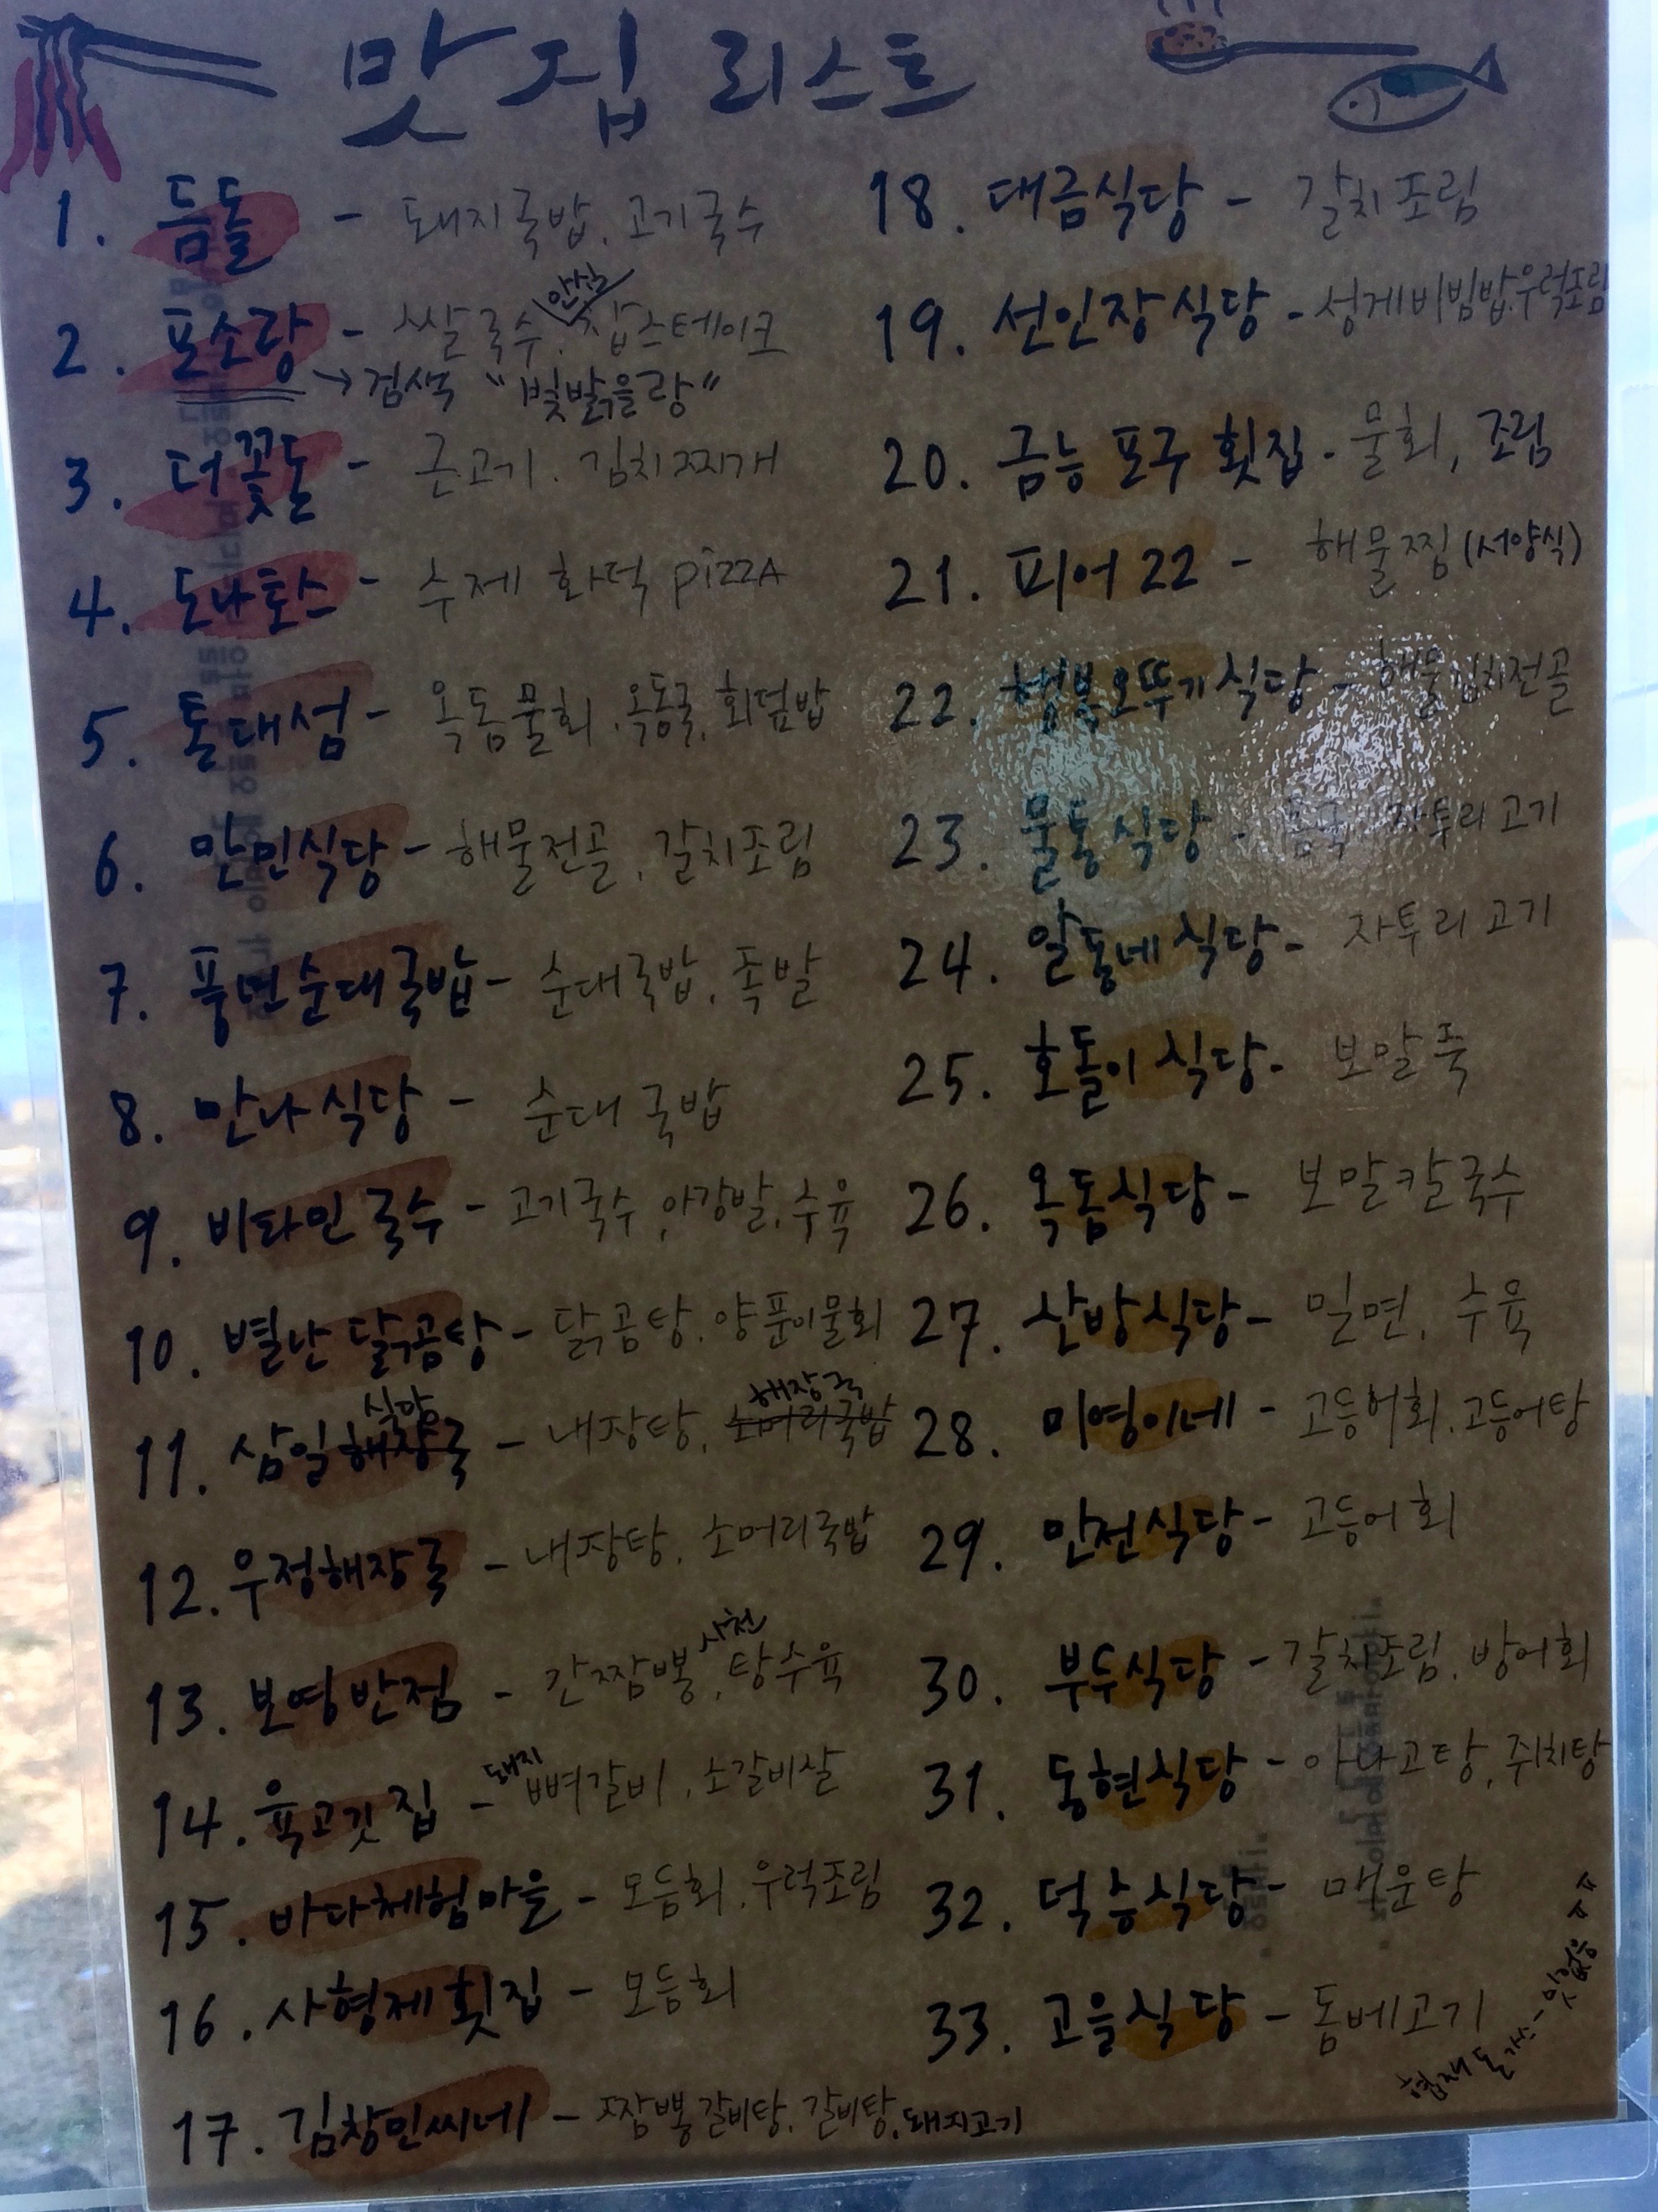 맛집 리스트
1. 듬돌 - 돼지국밥. 고기국수
2. 포소랑 - 쌀국수. 안심 찹스테이크
→ 검색 "빛밝을랑"
3. 더꽃돈 - 근고기. 김치찌개
4. 도나토스 - 수제 화덕 pizzA
5. 톤대섬 - 옥돔물회. 옥돔국, 회덮밥
6. 만민식당 - 해물전골, 갈치조림
7. 풍년순대국밥 - 순대국밥, 족발
8. 만나식당 - 순대국밥
9. 비타민국수 - 고기국수, 아강발, 수육
10. 별난 닭곰탕 - 닭곰탕. 양푼이물회
11. 삼일 식당 - 내장탕, 해장국
12. 우정해장국 - 내장탕. 소머리국밥
13. 보영반점 - 간짬뽕, 사천 탕수육
14. 육고깃집 - 돼지 뼈갈비, 소갈비살
15. 바다체험마을 - 모듬회. 우럭조림
16. 사형제횟집 - 모듬회
17. 김창민씨네 - 짬뽕갈비탕. 갈비탕, 돼지고기
18. 대금식당 - 갈치조림
19. 선인장식당 - 성게비빔밥.우럭조림
20. 금능포구횟집 - 물회, 조림
21. 피어22 - 해물찜(서양식)
22. 행복오뚜기식당 - 해물김치전골
23. 물통식당 - 자투리고기
24. 알동네식당 - 자투리고기
25. 호돌이식당 - 보말죽
26. 옥돔식당 - 보말칼국수
27. 산방식당 - 밀면, 수육
28. 미영이네 - 고등어회.고등어탕
29. 만전식당 - 고등어회
30. 부두식당 - 갈치조림. 방어회
31. 동현식당 - 아나고탕, 쥐치탕
32. 덕승식당 - 매운탕
33. 고을식당 - 돔베고기
협재 돈가스 - 맛없음ㅠㅠ